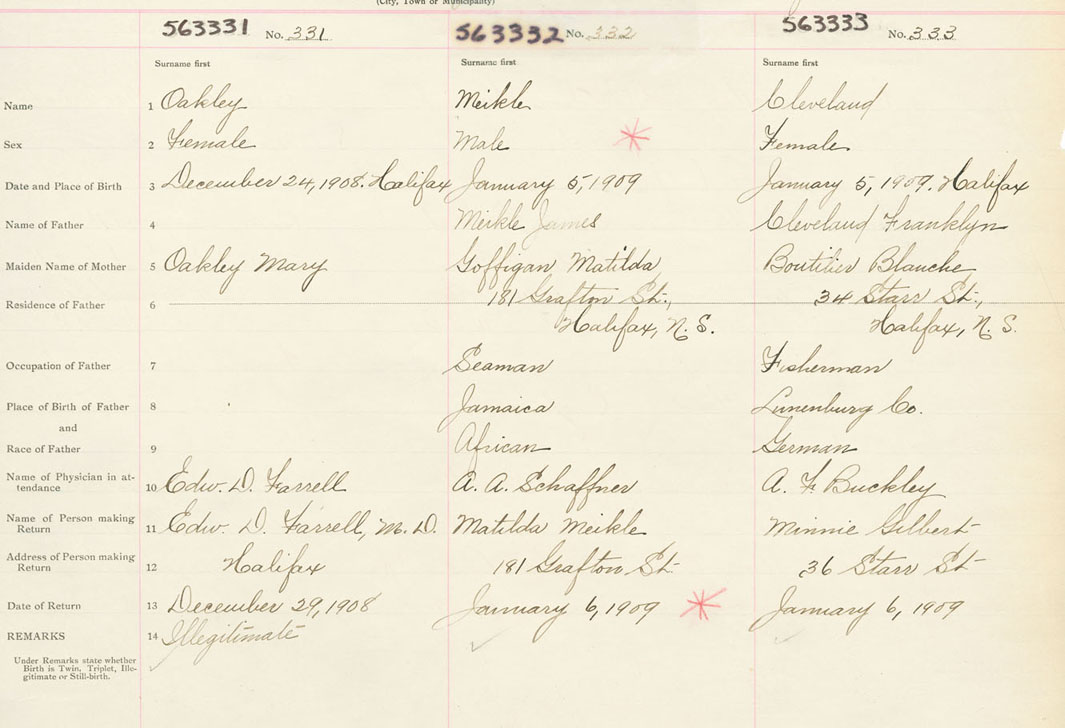 (City, Town or Municipality)
563331 No. 331 563332 No. 332 563333 No. 333
Surname first Surname first Surname first
Name 1 Oakley Meikle Cleveland
Sex 2 Female Male Female
Date and Place of Birth 3 December 24, 1908. Halifax January 5, 1909 January 5, 1909. Halifax
Name of Father 4 Meikle James Cleveland Franklyn
Maiden Name of Mother 5 Oakley Mary Goffigan Matilda Boutilier Blanche
Residence of Father 6 181 Grafton St., 34 Starr St.,
Halifax, N. S. Halifax, N. S.
Occupation of Father 7 Seaman Fisherman
Place of Birth of Father 8 Jamaica Lunenburg Co.
and
Race of Father 9 African German
Name of Physician in at-
tendance 10 Edw. D. Farrell A. A. Schaffner A. F. Buckley
Name of Person making
Return 11 Edw. D. Farrell, M. D. Matilda Meikle Minnie Gilbert
Address of Person making
Return 12 Halifax 181 Grafton St. 36 Starr St
Date of Return 13 December 29, 1908 January 6, 1909 January 6, 1909
REMARKS 14 Illegitimate
Under Remarks state whether
Birth is Twin, Triplet, Ille-
gitimate or Still-birth.